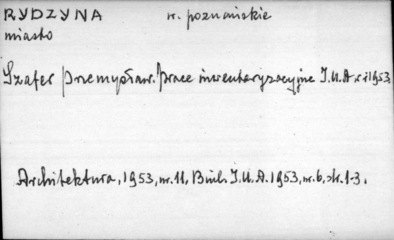 RYDZYNA w. poznańskie
miasto
Szafer Przemysław. Prace inwentaryzacyjne I.U.A. w r. 1953.
Architektura, 1953, nr. 11, Biul. I.U.A. 1953, nr. 6, str. 1-3.